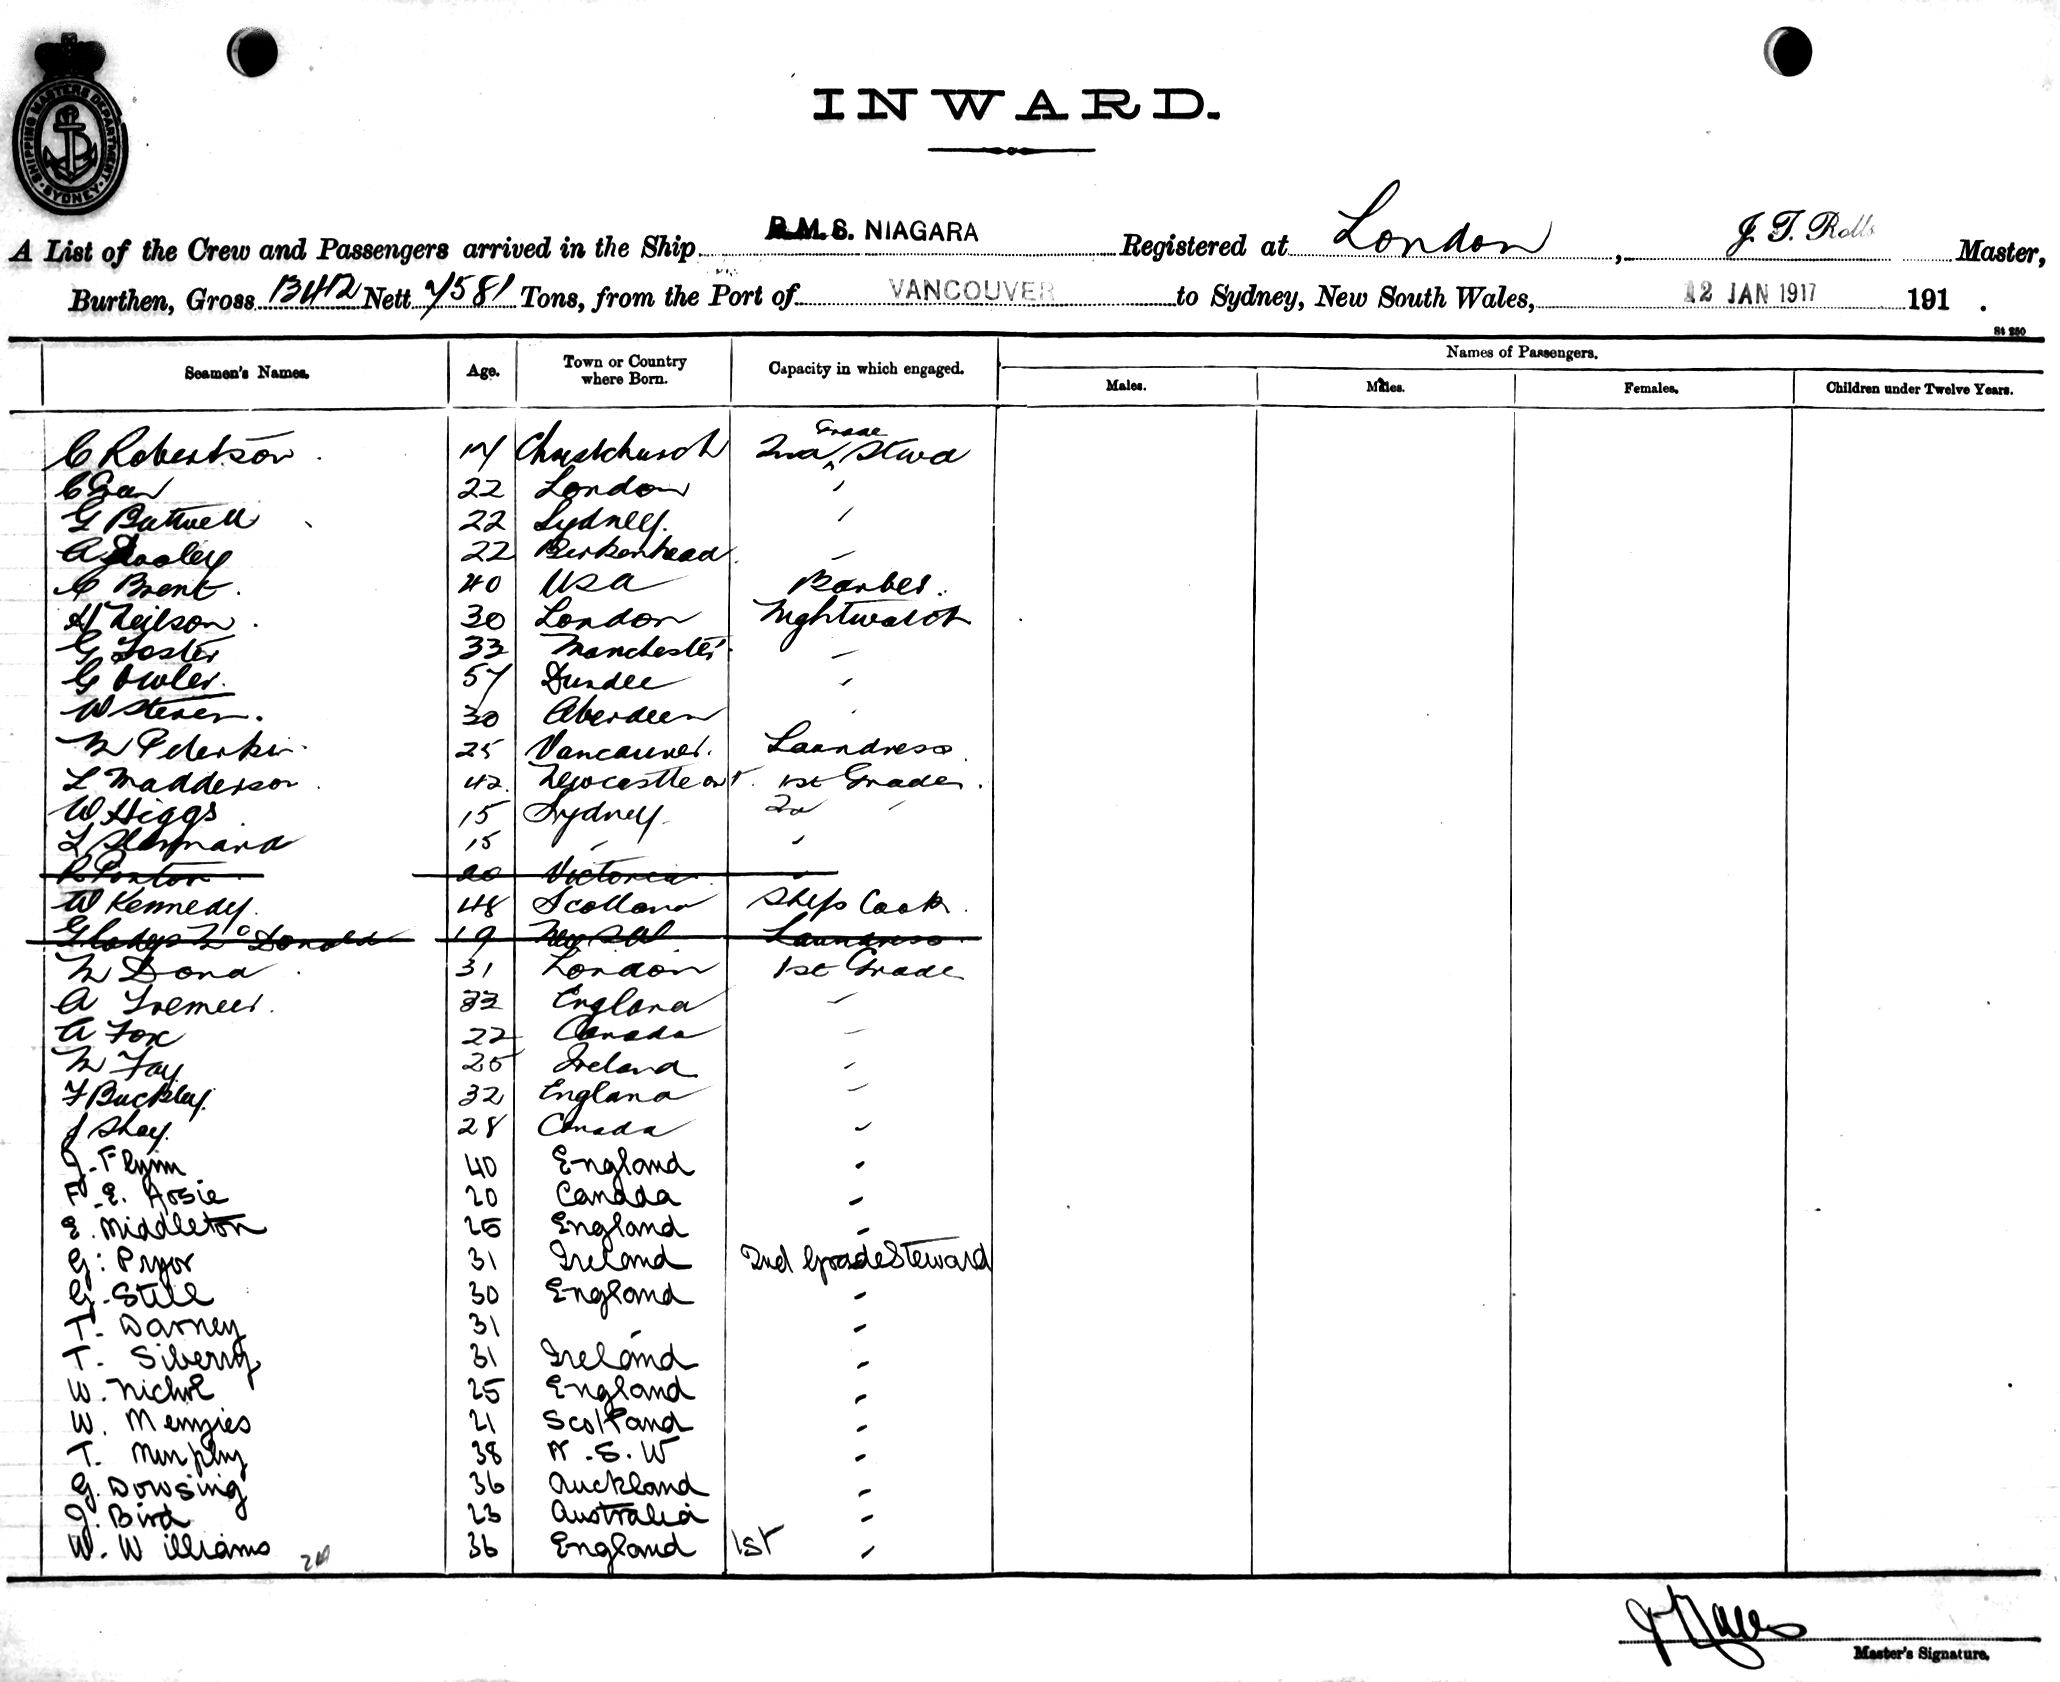 SHIPPING MASTERS DEPARTMENT. SYDNEY.
INWARD.
A List of the Crew and Passengers arrived in the Ship R.M.S. NIAGARA Registered at London, J. T. Rolls Master,
Burthen, Gross 13412 Nett 7581 Tons, from the Port of VANCOUVER to Sydney, New South Wales, 12 JAN 1917 191 .
St 250
Seamen's Names. Age. Town or Country where Born. Capacity in which engaged. Names of Passengers.
Males. Males. Females. Children under Twelve Years.
C Robertson 17 Christchurch 2nd Grade Stwd
C 22 London "
G Buttwell 22 Sydney "
A 22 Birkenhead "
C Brent 40 USA Barber
H Neilson 30 London Nightwatch
G Foster 33 Manchester "
G Fowler 57 Dundee "
W Steven 30 Aberdeen "
M Peterkin 25 Vancouver Laundress
L Madderson 42 Newcastle on T. 1st Grade
W Higgs 15 Sydney 2nd "
L 15 " "
R Ponton 20 Victoria "
W Kennedy 48 Scotland Ships Cook
Gladys McDonald 19 Laundress
M Dona 31 London 1st Grade
A Tremeer 33 England "
A Fox 22 Canada "
M Fay 25 Ireland "
F Buckley 32 England "
J Shay 28 Canada "
J. Flynn 40 England "
F. E. Hosie 20 Canada "
E. Middleton 25 England "
G. Pryor 31 Ireland 2nd Grade Steward
G. Still 30 England "
T. Darney 31 " "
T. Siberry 31 Ireland "
W. Nichol 25 England "
W. Menzies 21 Scotland "
T. Murphy 38 N.S.W "
G. Dowsing 36 Auckland "
J. Bird 23 Australia "
W. Williams 36 England 1st "
Master's Signature.